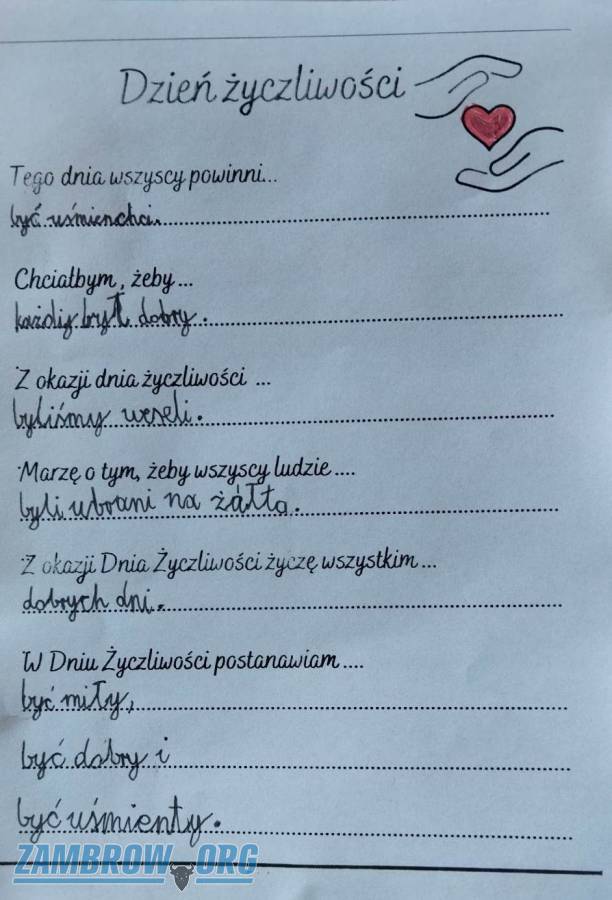 Dzień życzliwości
Tego dnia wszyscy powinni...
być uśmienchci.
Chciałbym, żeby...
każdy był dobry.
Z okazji dnia życzliwości ...
byliśmy weseli.
Marzę o tym, żeby wszyscy ludzie ....
byli ubrani na żółto.
Z okazji Dnia Życzliwości życzę wszystkim ...
dobrych dni.
W Dniu Życzliwości postanawiam ....
być miły,
być dobry i
być uśmienty.
ZAMBROW.ORG